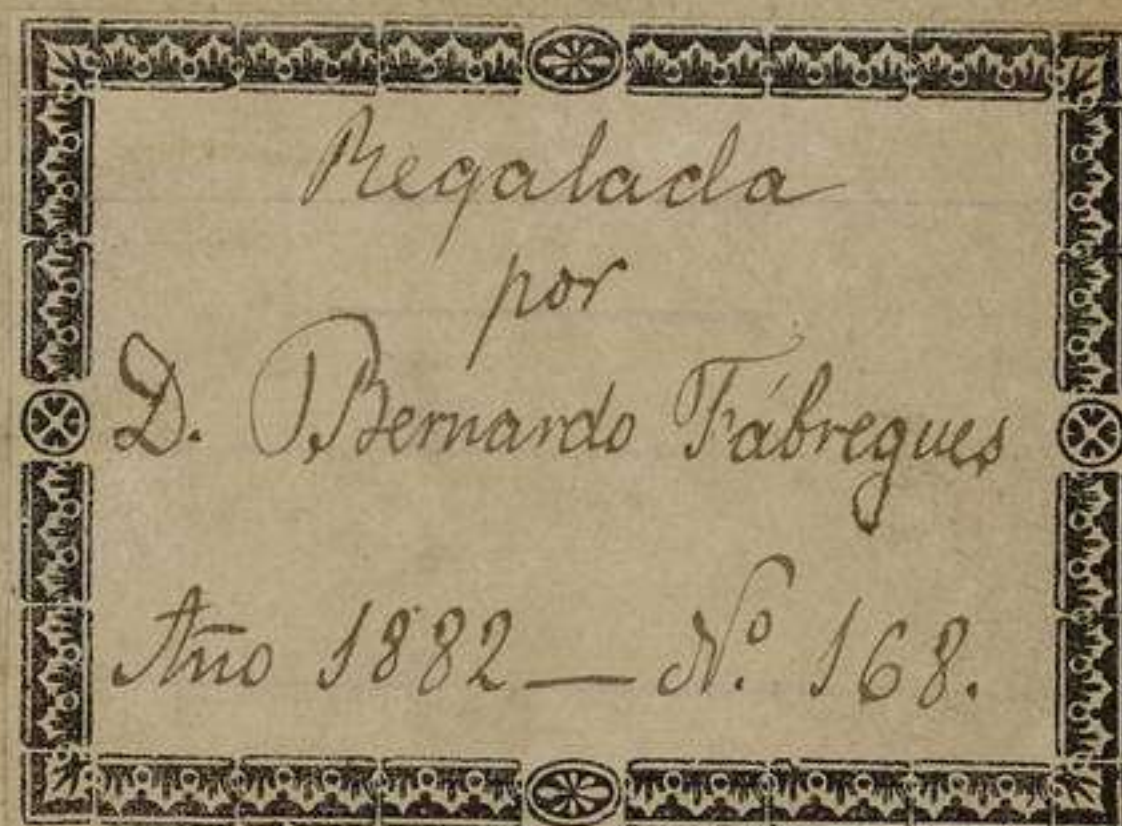 Regalada
por
D. Bernardo Fábregues
Año 1882 — Nº 168.